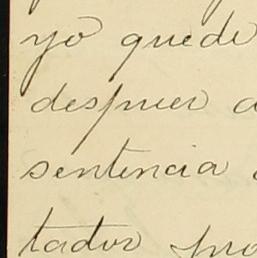 yo quede
despues
sentencia
tador pro